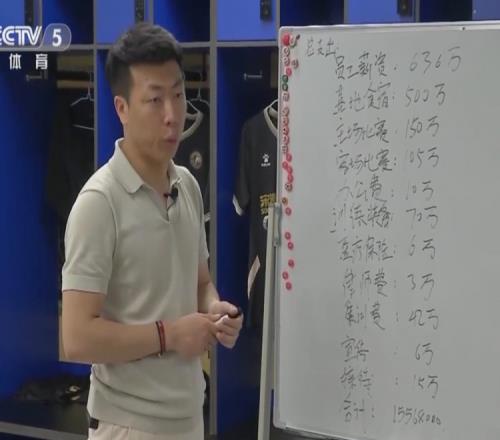 CCTV 5
体育
总支出:
员工薪资: 636万
基地食宿: 500万
主场比赛: 150万
客场比赛: 105万
办公费: 10万
训练装备: 70万
医疗保险: 6万
律师费: 3万
集训费: 42万
宣传 6万
接待: 15万
合计: 15568000